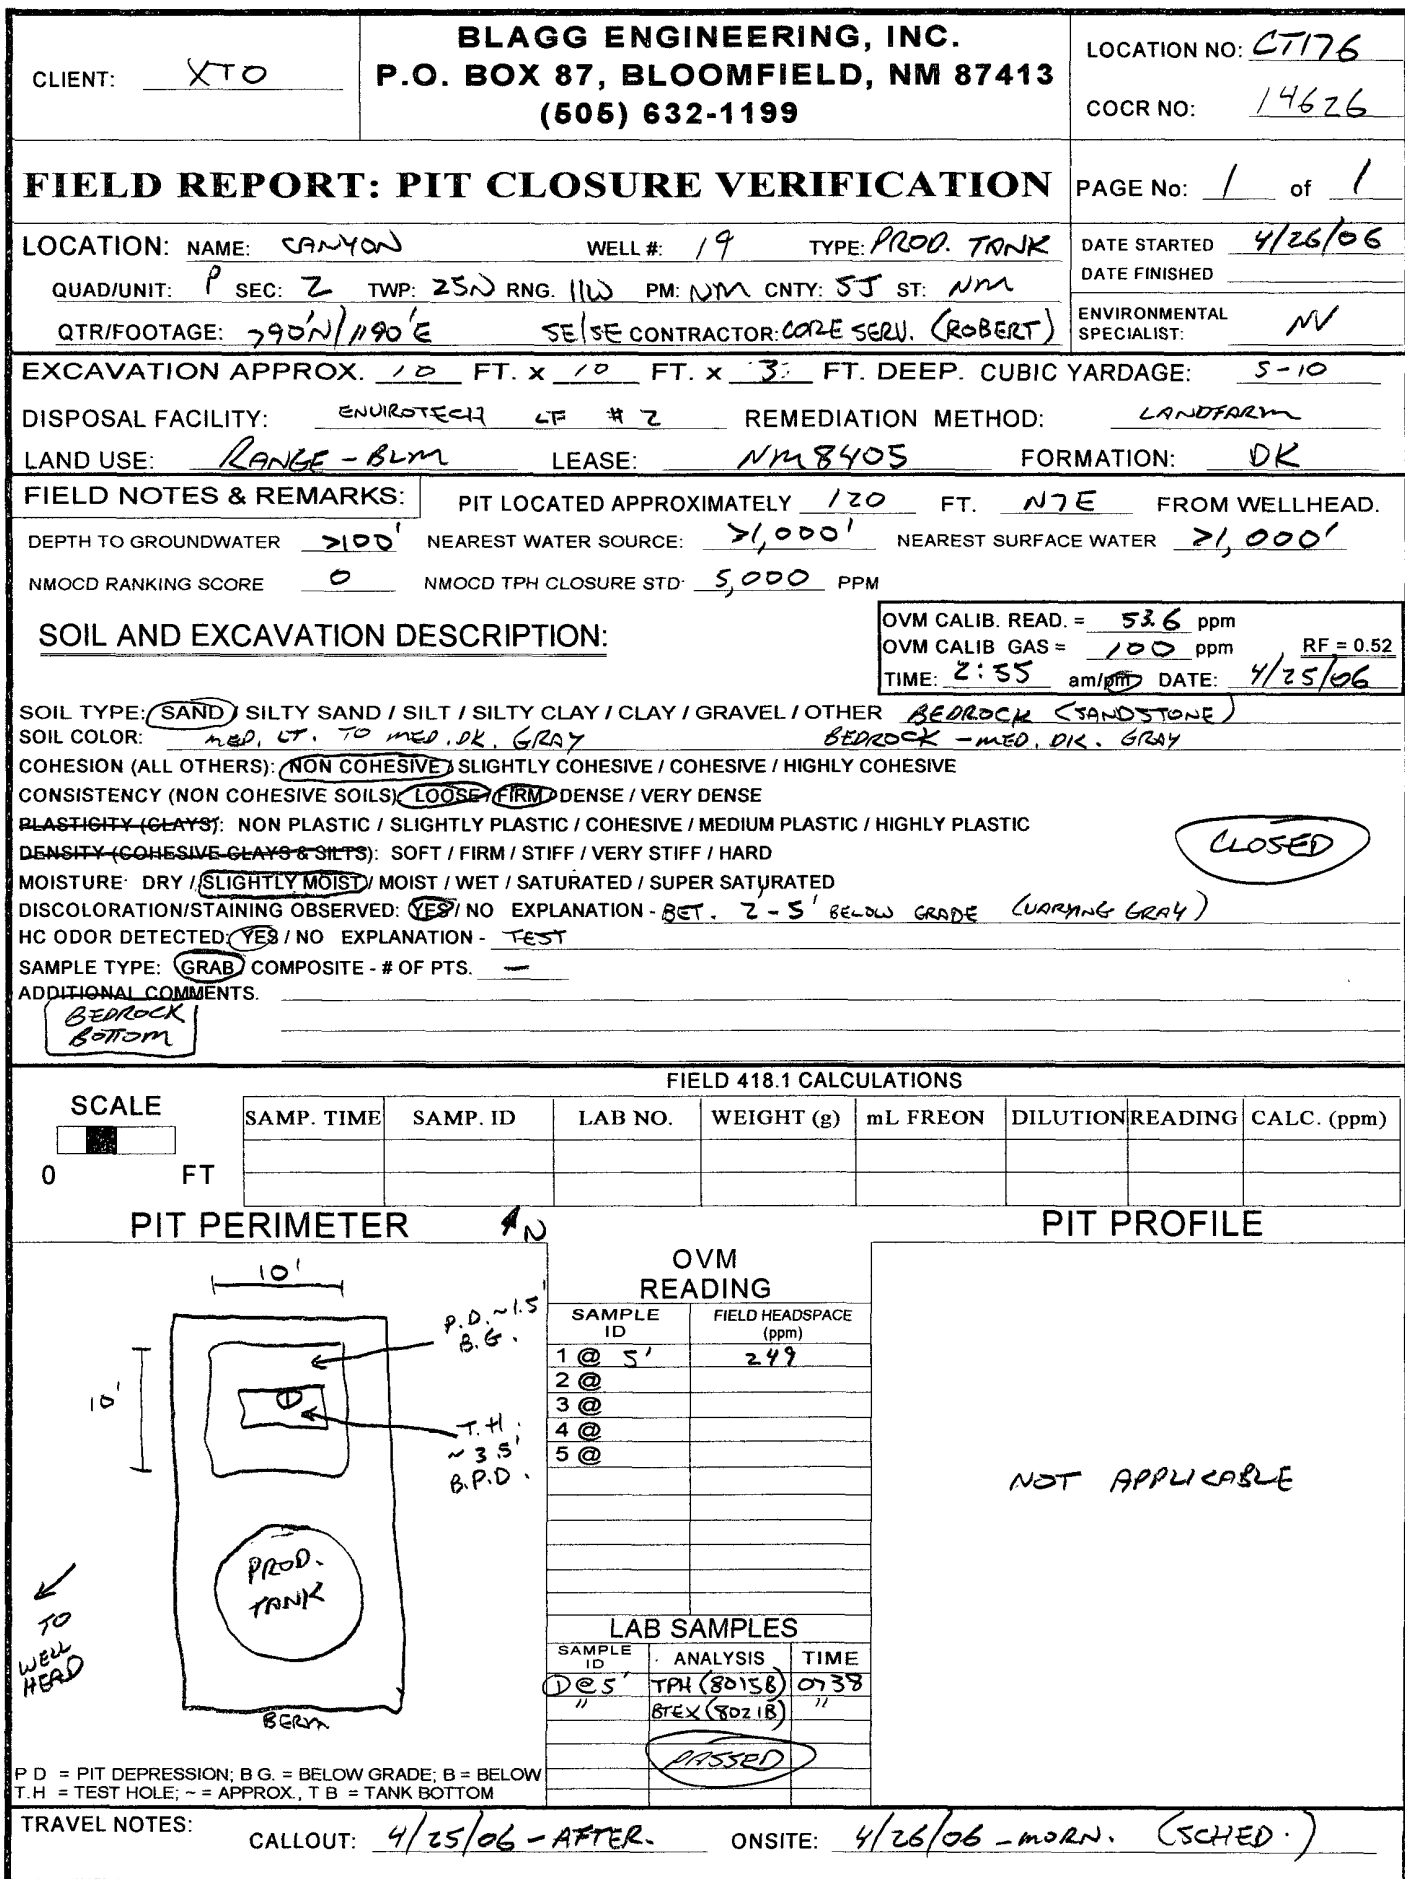 CLIENT: XTO
BLAGG ENGINEERING, INC.
P.O. BOX 87, BLOOMFIELD, NM 87413
(505) 632-1199
LOCATION NO: CT176
COCR NO: 14626
FIELD REPORT: PIT CLOSURE VERIFICATION
PAGE No: 1 of 1
LOCATION: NAME: CANYON WELL #: 19 TYPE: PROD. TANK
QUAD/UNIT: P SEC: 2 TWP: 25N RNG. 11W PM: NM CNTY: SJ ST: NM
QTR/FOOTAGE: 790'N/1190'E SE/SE CONTRACTOR: CORE SERV. (ROBERT)
DATE STARTED 4/26/06
DATE FINISHED
ENVIRONMENTAL
SPECIALIST: NV
EXCAVATION APPROX. 10 FT. x 10 FT. x 3. FT. DEEP. CUBIC YARDAGE: 5-10
DISPOSAL FACILITY: ENVIROTECH LF # 2 REMEDIATION METHOD: LANDFARM
LAND USE: RANGE - BLM LEASE: NM 8405 FORMATION: DK
FIELD NOTES & REMARKS: PIT LOCATED APPROXIMATELY 120 FT. N7E FROM WELLHEAD.
DEPTH TO GROUNDWATER >100' NEAREST WATER SOURCE: >1,000' NEAREST SURFACE WATER >1,000'
NMOCD RANKING SCORE 0 NMOCD TPH CLOSURE STD· 5,000 PPM
SOIL AND EXCAVATION DESCRIPTION:
OVM CALIB. READ. = 53.6 ppm
OVM CALIB GAS = 100 ppm RF = 0.52
TIME: 2:55 am/pm DATE: 4/25/06
SOIL TYPE: SAND / SILTY SAND / SILT / SILTY CLAY / CLAY / GRAVEL / OTHER BEDROCK (SANDSTONE)
SOIL COLOR: MED. LT. TO MED. DK. GRAY BEDROCK - MED. DK. GRAY
COHESION (ALL OTHERS): NON COHESIVE / SLIGHTLY COHESIVE / COHESIVE / HIGHLY COHESIVE
CONSISTENCY (NON COHESIVE SOILS): LOOSE / FIRM / DENSE / VERY DENSE
PLASTICITY (CLAYS): NON PLASTIC / SLIGHTLY PLASTIC / COHESIVE / MEDIUM PLASTIC / HIGHLY PLASTIC
DENSITY (COHESIVE CLAYS & SILTS): SOFT / FIRM / STIFF / VERY STIFF / HARD
CLOSED
MOISTURE· DRY / SLIGHTLY MOIST / MOIST / WET / SATURATED / SUPER SATURATED
DISCOLORATION/STAINING OBSERVED: YES / NO EXPLANATION - BET. 2 - 5' BELOW GRADE (VARYING GRAY)
HC ODOR DETECTED: YES / NO EXPLANATION - TEST
SAMPLE TYPE: GRAB / COMPOSITE - # OF PTS. —
ADDITIONAL COMMENTS.
BEDROCK
BOTTOM
FIELD 418.1 CALCULATIONS
SCALE
0 FT
SAMP. TIME SAMP. ID LAB NO. WEIGHT (g) mL FREON DILUTION READING CALC. (ppm)
PIT PERIMETER N
10'
10'
P.D. ~1.5'
B.G.
1
T.H.
~ 3.5'
B.P.D.
PROD.
TANK
TO
WELL
HEAD
BERM
P D = PIT DEPRESSION; B G. = BELOW GRADE; B = BELOW
T.H = TEST HOLE; ~ = APPROX., T B = TANK BOTTOM
OVM
READING
SAMPLE ID FIELD HEADSPACE (ppm)
1 @ 5' 249
2 @
3 @
4 @
5 @
LAB SAMPLES
SAMPLE ID ANALYSIS TIME
1 @ 5' TPH (8015B) 0738
" BTEX (8021B) "
PASSED
PIT PROFILE
NOT APPLICABLE
TRAVEL NOTES: CALLOUT: 4/25/06 - AFTER. ONSITE: 4/26/06 - MORN. (SCHED.)